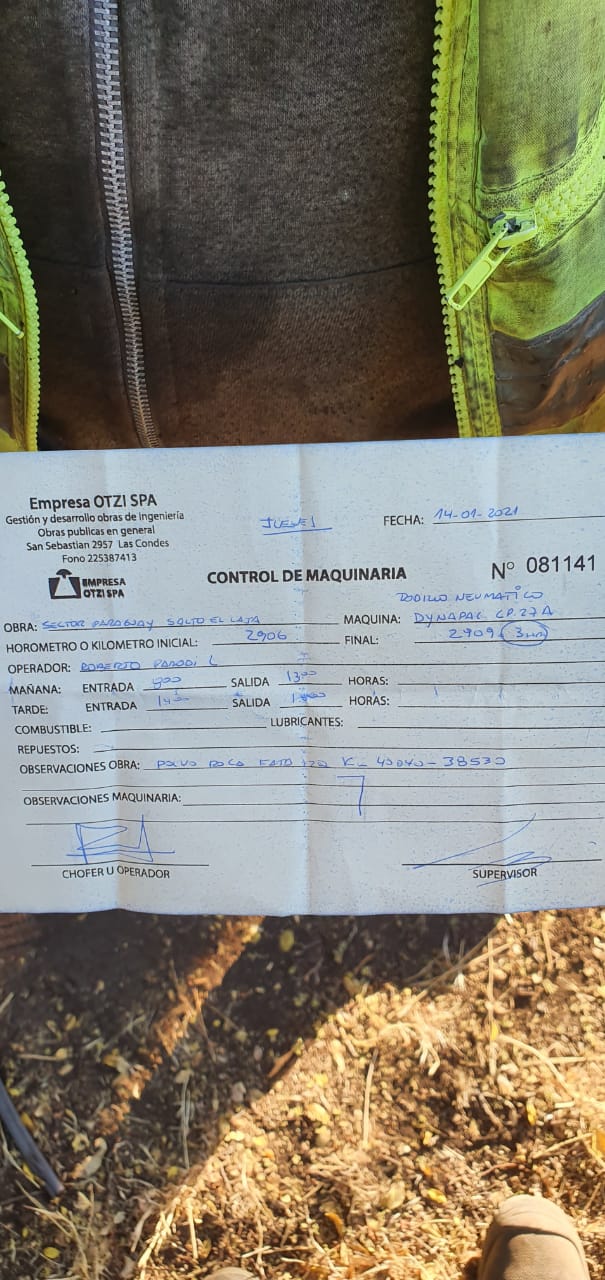 Empresa OTZI SPA
Gestión y desarrollo obras de ingeniería
Obras publicas en general
San Sebastian 2957 Las Condes
Fono 225387413
EMPRESA
OTZI SPA
JUEVES
FECHA: 14-01-2021
CONTROL DE MAQUINARIA
Nº 081141
RODILLO NEUMATICO
OBRA: SECTOR PARAGUAY SALTO EL LAJA MAQUINA: DYNAPAC CP.27A
HOROMETRO O KILOMETRO INICIAL: 2906 FINAL: 2909
OPERADOR: ROBERTO PARODI L
MAÑANA: ENTRADA 800 SALIDA 1300 HORAS:
TARDE: ENTRADA SALIDA HORAS:
COMBUSTIBLE: LUBRICANTES:
REPUESTOS:
OBSERVACIONES OBRA: POLVO ROCA K- 38530
OBSERVACIONES MAQUINARIA:
CHOFER U OPERADOR
SUPERVISOR